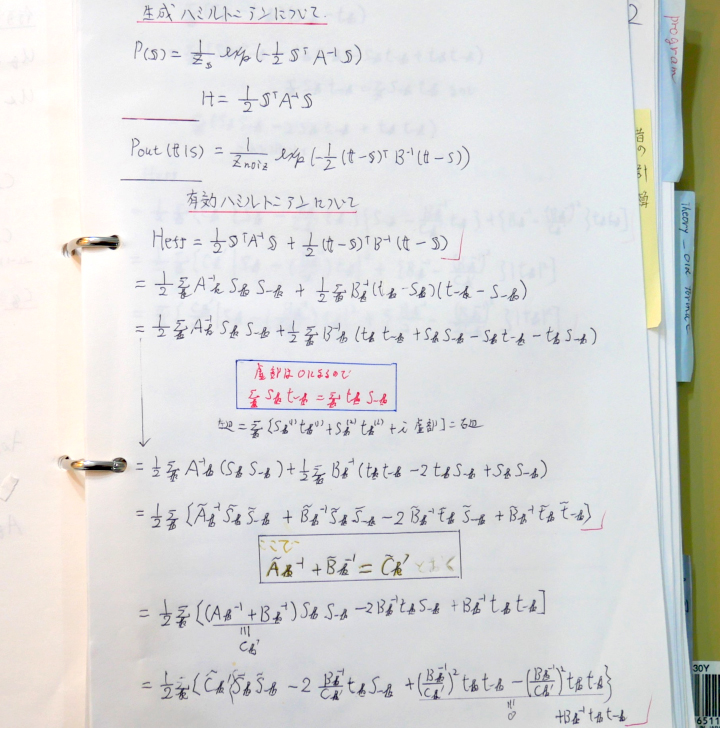 生成ハミルトニアンについて
P(S) = 1/Z_S exp(-1/2 S^T A^-1 S)
H = 1/2 S^T A^-1 S
Pout(t|S) = 1/Znoiz exp(-1/2 (t-S)^T B^-1 (t-S))
有効ハミルトニアンについて
Heff = 1/2 S^T A^-1 S + 1/2 (t-S)^T B^-1 (t-S)
= 1/2 Σ_k A^-1_k S_k S_-k + 1/2 Σ_k B_k^-1 (t_k - S_k)(t_-k - S_-k)
= 1/2 Σ_k A^-1_k S_k S_-k + 1/2 Σ_k B^-1_k (t_k t_-k + S_k S_-k - S_k t_-k - t_k S_-k)
虚部は0になるので
Σ_k S_k t_-k = Σ_k t_k S_-k
左辺 = Σ_k {S_k^(1) t_k^(1) + S_k^(2) t_k^(2) + i 虚部} = 右辺
= 1/2 Σ_k A^-1_k (S_k S_-k) + 1/2 Σ_k B_k^-1 (t_k t_-k - 2 t_k S_-k + S_k S_-k)
= 1/2 Σ_k {Ã_k^-1 S̃_k S̃_-k + B̃_k^-1 S̃_k S̃_-k - 2 B̃_k^-1 t̃_k S̃_-k + B̃_k^-1 t̃_k t̃_-k}
ここで
Ã_k^-1 + B̃_k^-1 = C̃_k' とおく
= 1/2 Σ_k {(A_k^-1 + B_k^-1) S_k S_-k - 2 B_k^-1 t_k S_-k + B_k^-1 t_k t_-k]
C_k'
= 1/2 Σ_k { C̃_k' (S̃_k S̃_-k - 2 B_k^-1/C_k' t_k S_-k + (B_k^-1/C_k')^2 t_k t_-k - (B_k^-1/C_k')^2 t_k t_-k}
0
+B_k^-1 t_k t_-k
2
program
昔の計算
Theory - OLR format
30Y
6511